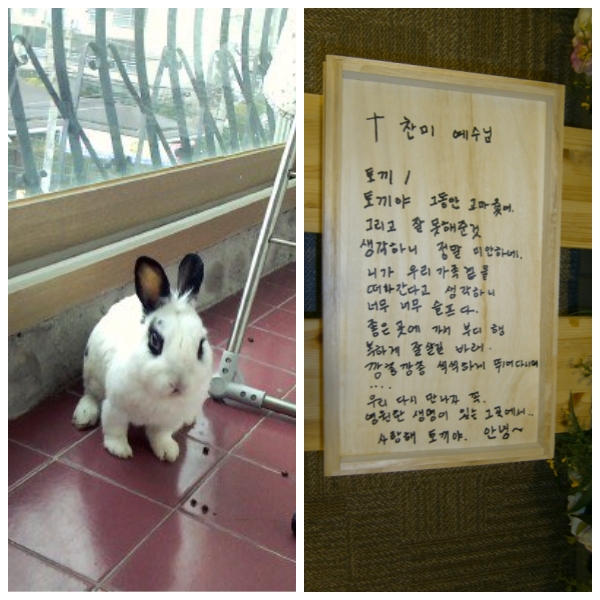 † 찬미 예수님
토끼!
토끼야 그동안 고마웠어.
그리고 잘 못해준것
생각하니 정말 미안하네.
니가 우리 가족곁을
떠나간다고 생각하니
너무 너무 슬프다.
좋은곳에 가서 부디 행
복하게 잘살길 바래.
깡총깡총 씩씩하게 뛰어다니며
....
우리 다시 만나자 꼭.
영원한 생명이 있는 그곳에서..
사랑해 토끼야. 안녕~